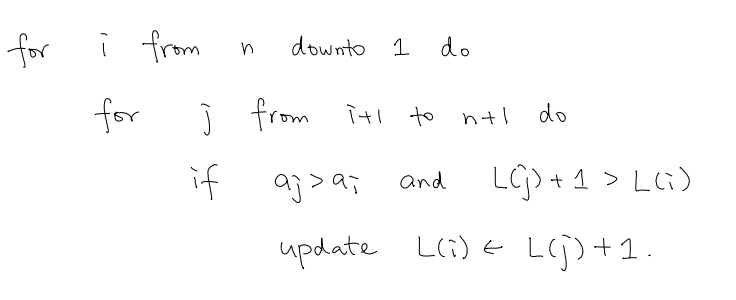 for i from n downto 1 do
for j from i+1 to n+1 do
if aj > ai and L(j) + 1 > L(i)
update L(i) ← L(j) + 1.